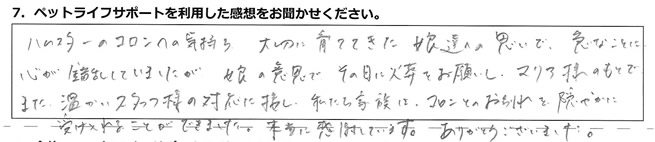 7. ペットライフサポートを利用した感想をお聞かせください。
ハムスターのコロンへの気持ち 大切に育ててきた娘達への思いで、急なことに
心が錯乱していましたが 娘の意思で その日に火葬をお願いし、マリア様のもとで
また、温かいスタッフ様の対応に接し、私たち家族は、コロンとのお別れを穏やかに
受け入れることができました。本当に感謝しています。ありがとうございました。